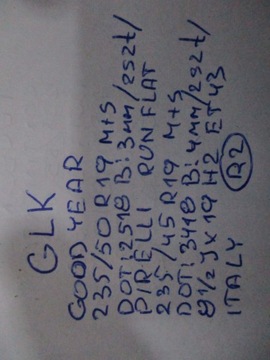 GLK
GOOD YEAR
235/50 R19 M+S
DOT: 2518 B: 3MM/252t/
PIRELLI RUN FLAT
235/45 R19 M+S
DOT: 3418 B: 4MM/292t/
8 1/2 J X 19 H2 ET 43
ITALY R2